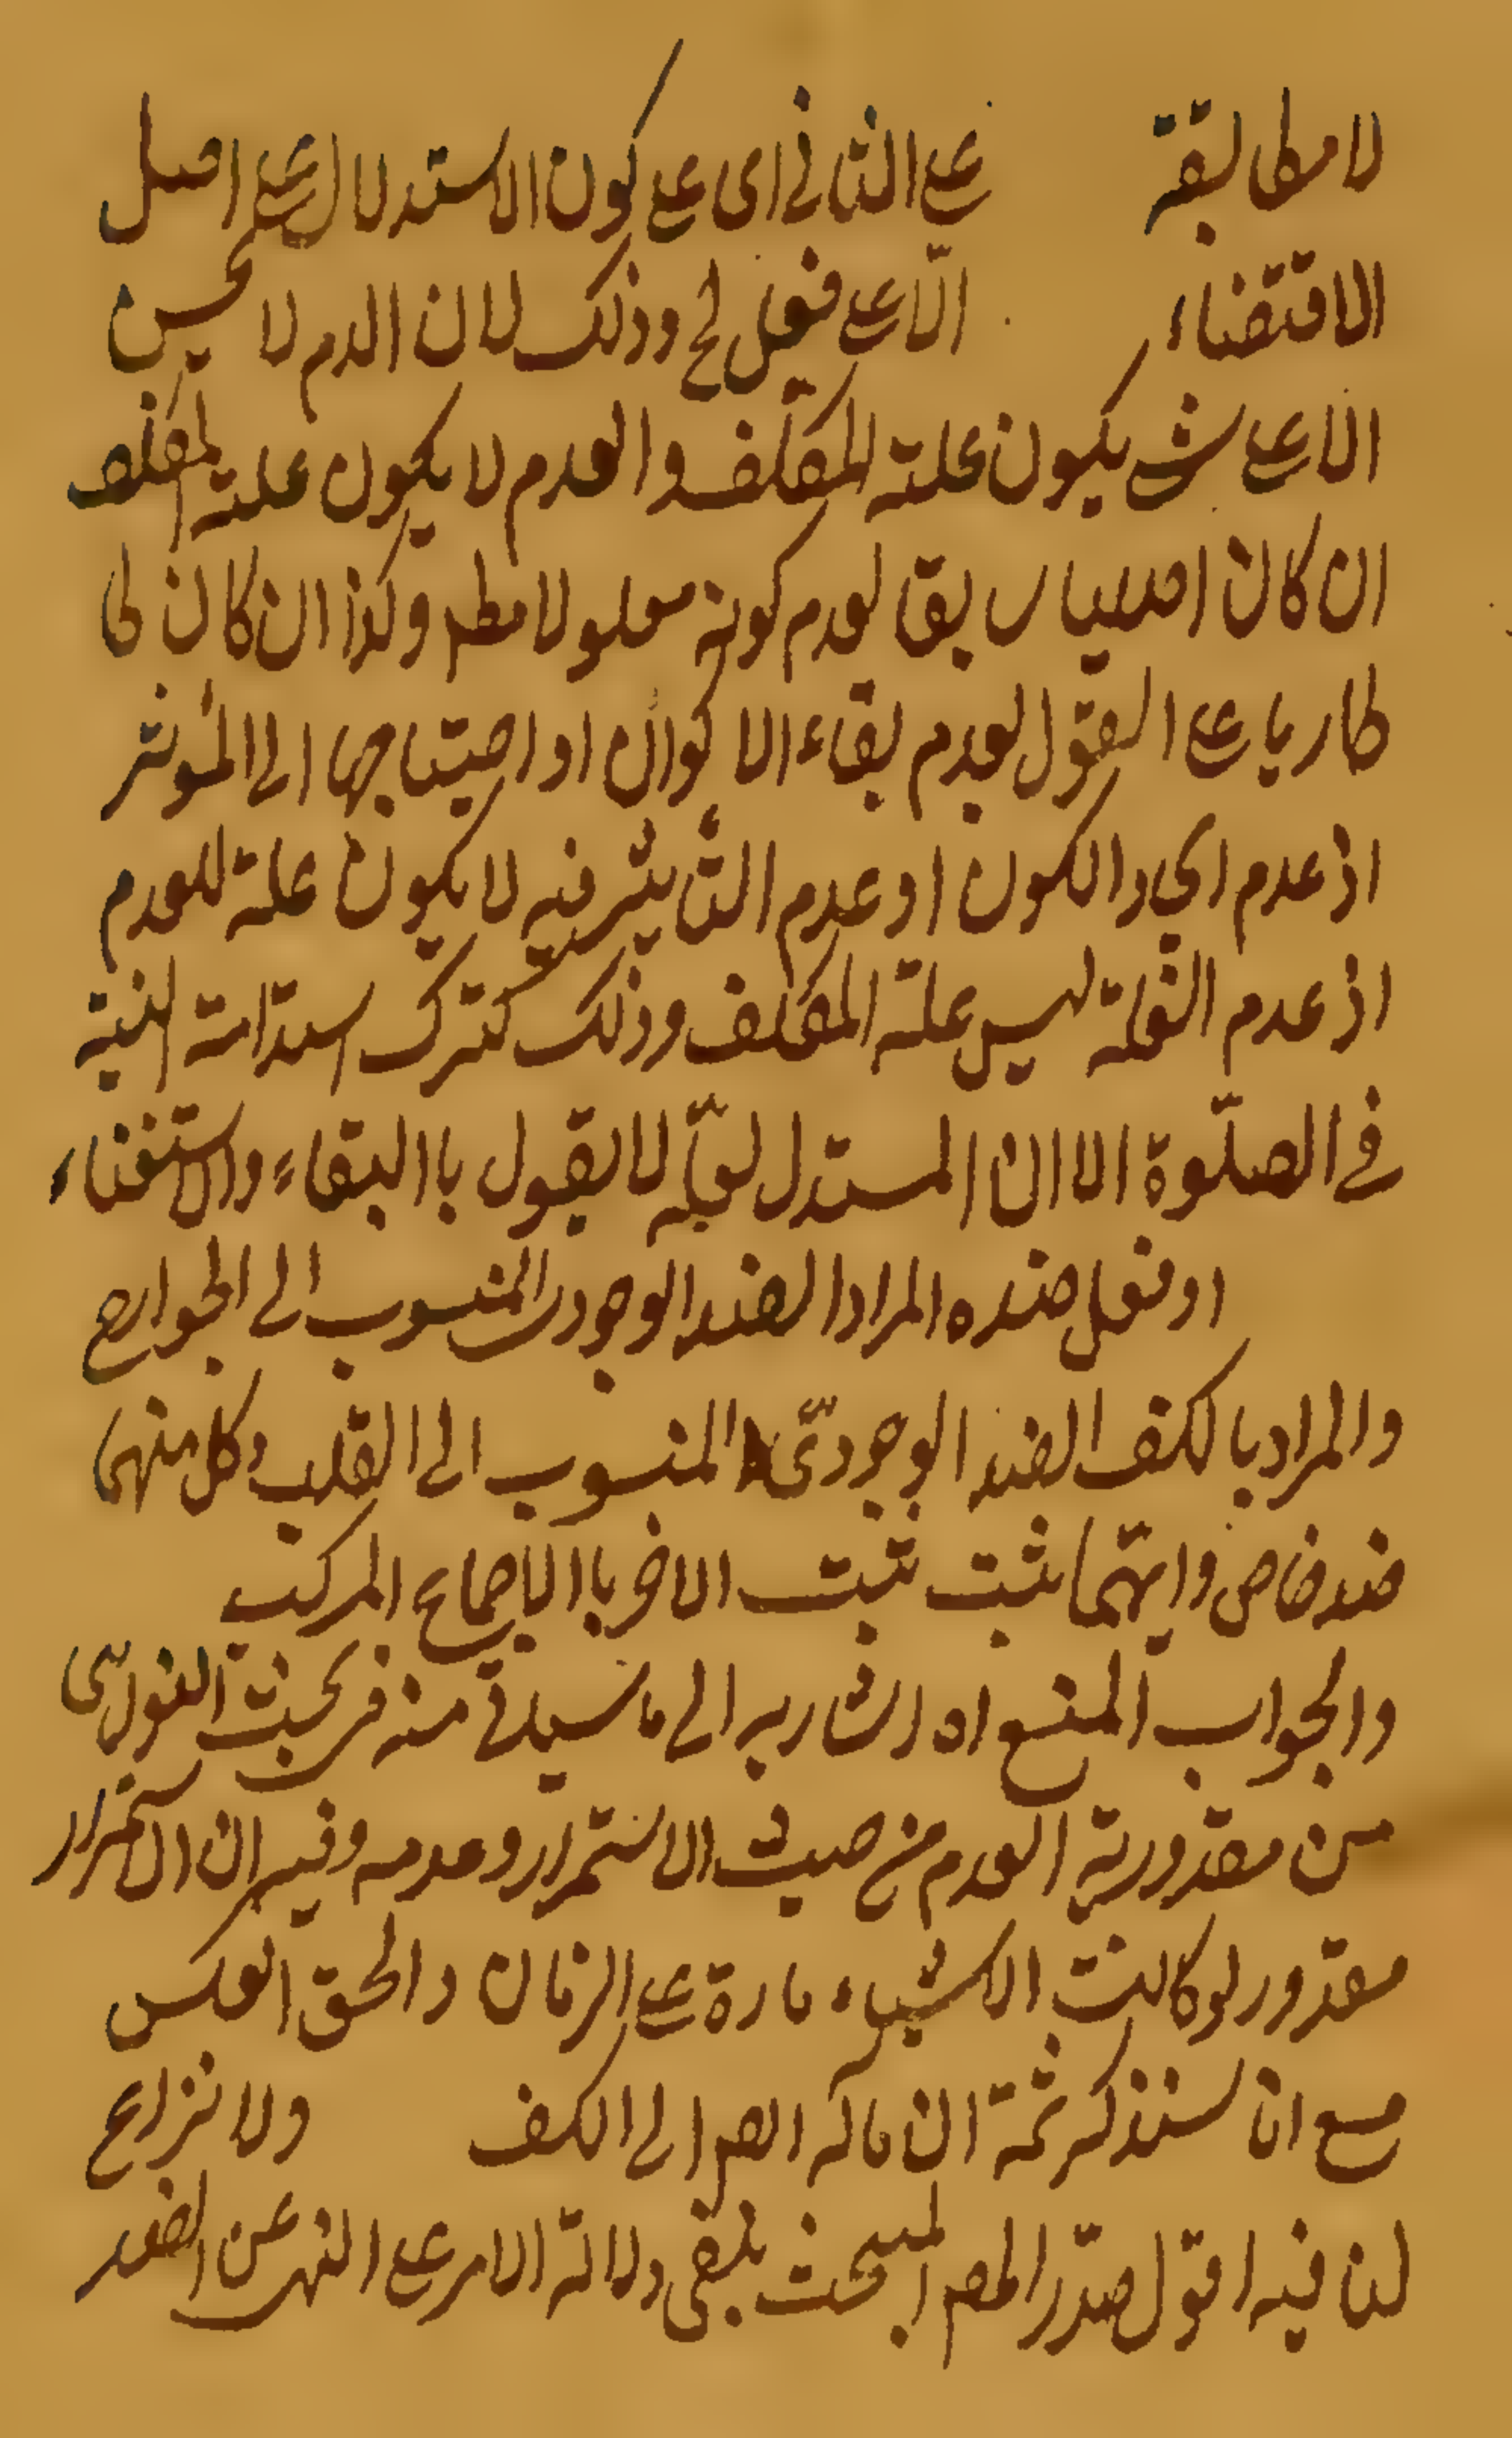 لا مطابقة على الثاني اى على كون الاستدلال على اصل
الاقتضاء الّا على فعل لخ وذلك لان الذم لا يحسن
الا على شئ يكون علته المكلف والعدم لا يكون علته المكلف
ان كان اصليا بقا لعدم كونه معلولا مطم وكذا ان كان
طاريا على القول بعدم بقاء الاكوان او احتياجها الى المؤثر
اذ عدم ايجاد الكون او عدم التاثير فيه لا يكون علة للعدم
اذ عدم العلة ليس علته المكلف وذلك كترك استدامة النية
فى الصلوة الا ان المستدل لعلّه لا يقول باالبقاء والاستغناء
او فعل ضده المراد الضد الوجودى المنسوب الى الجوارح
والمراد بالكف الضد الوجودىّ المنسوب الى القلب وكل منهى
ضد خاص وايتهما ثبت ثبت الاخر باالاجماع المركب
والجواب المنع اه اشار به الى ما سياتى منه فى بحث النواهى
من مقدورية العدم من حيث الاستمرار وعدمه وفيه ان الاستمرار
مقدور لو كانت الاشياء مارة على الزمان والحق العكس
مع انا سنذكر ثمة ان مآله الصم الى الكف ولا نزاع
لنا فيه اقول صدّر المصم المبحث بنفى دلالة الامر على النهى عن الضد